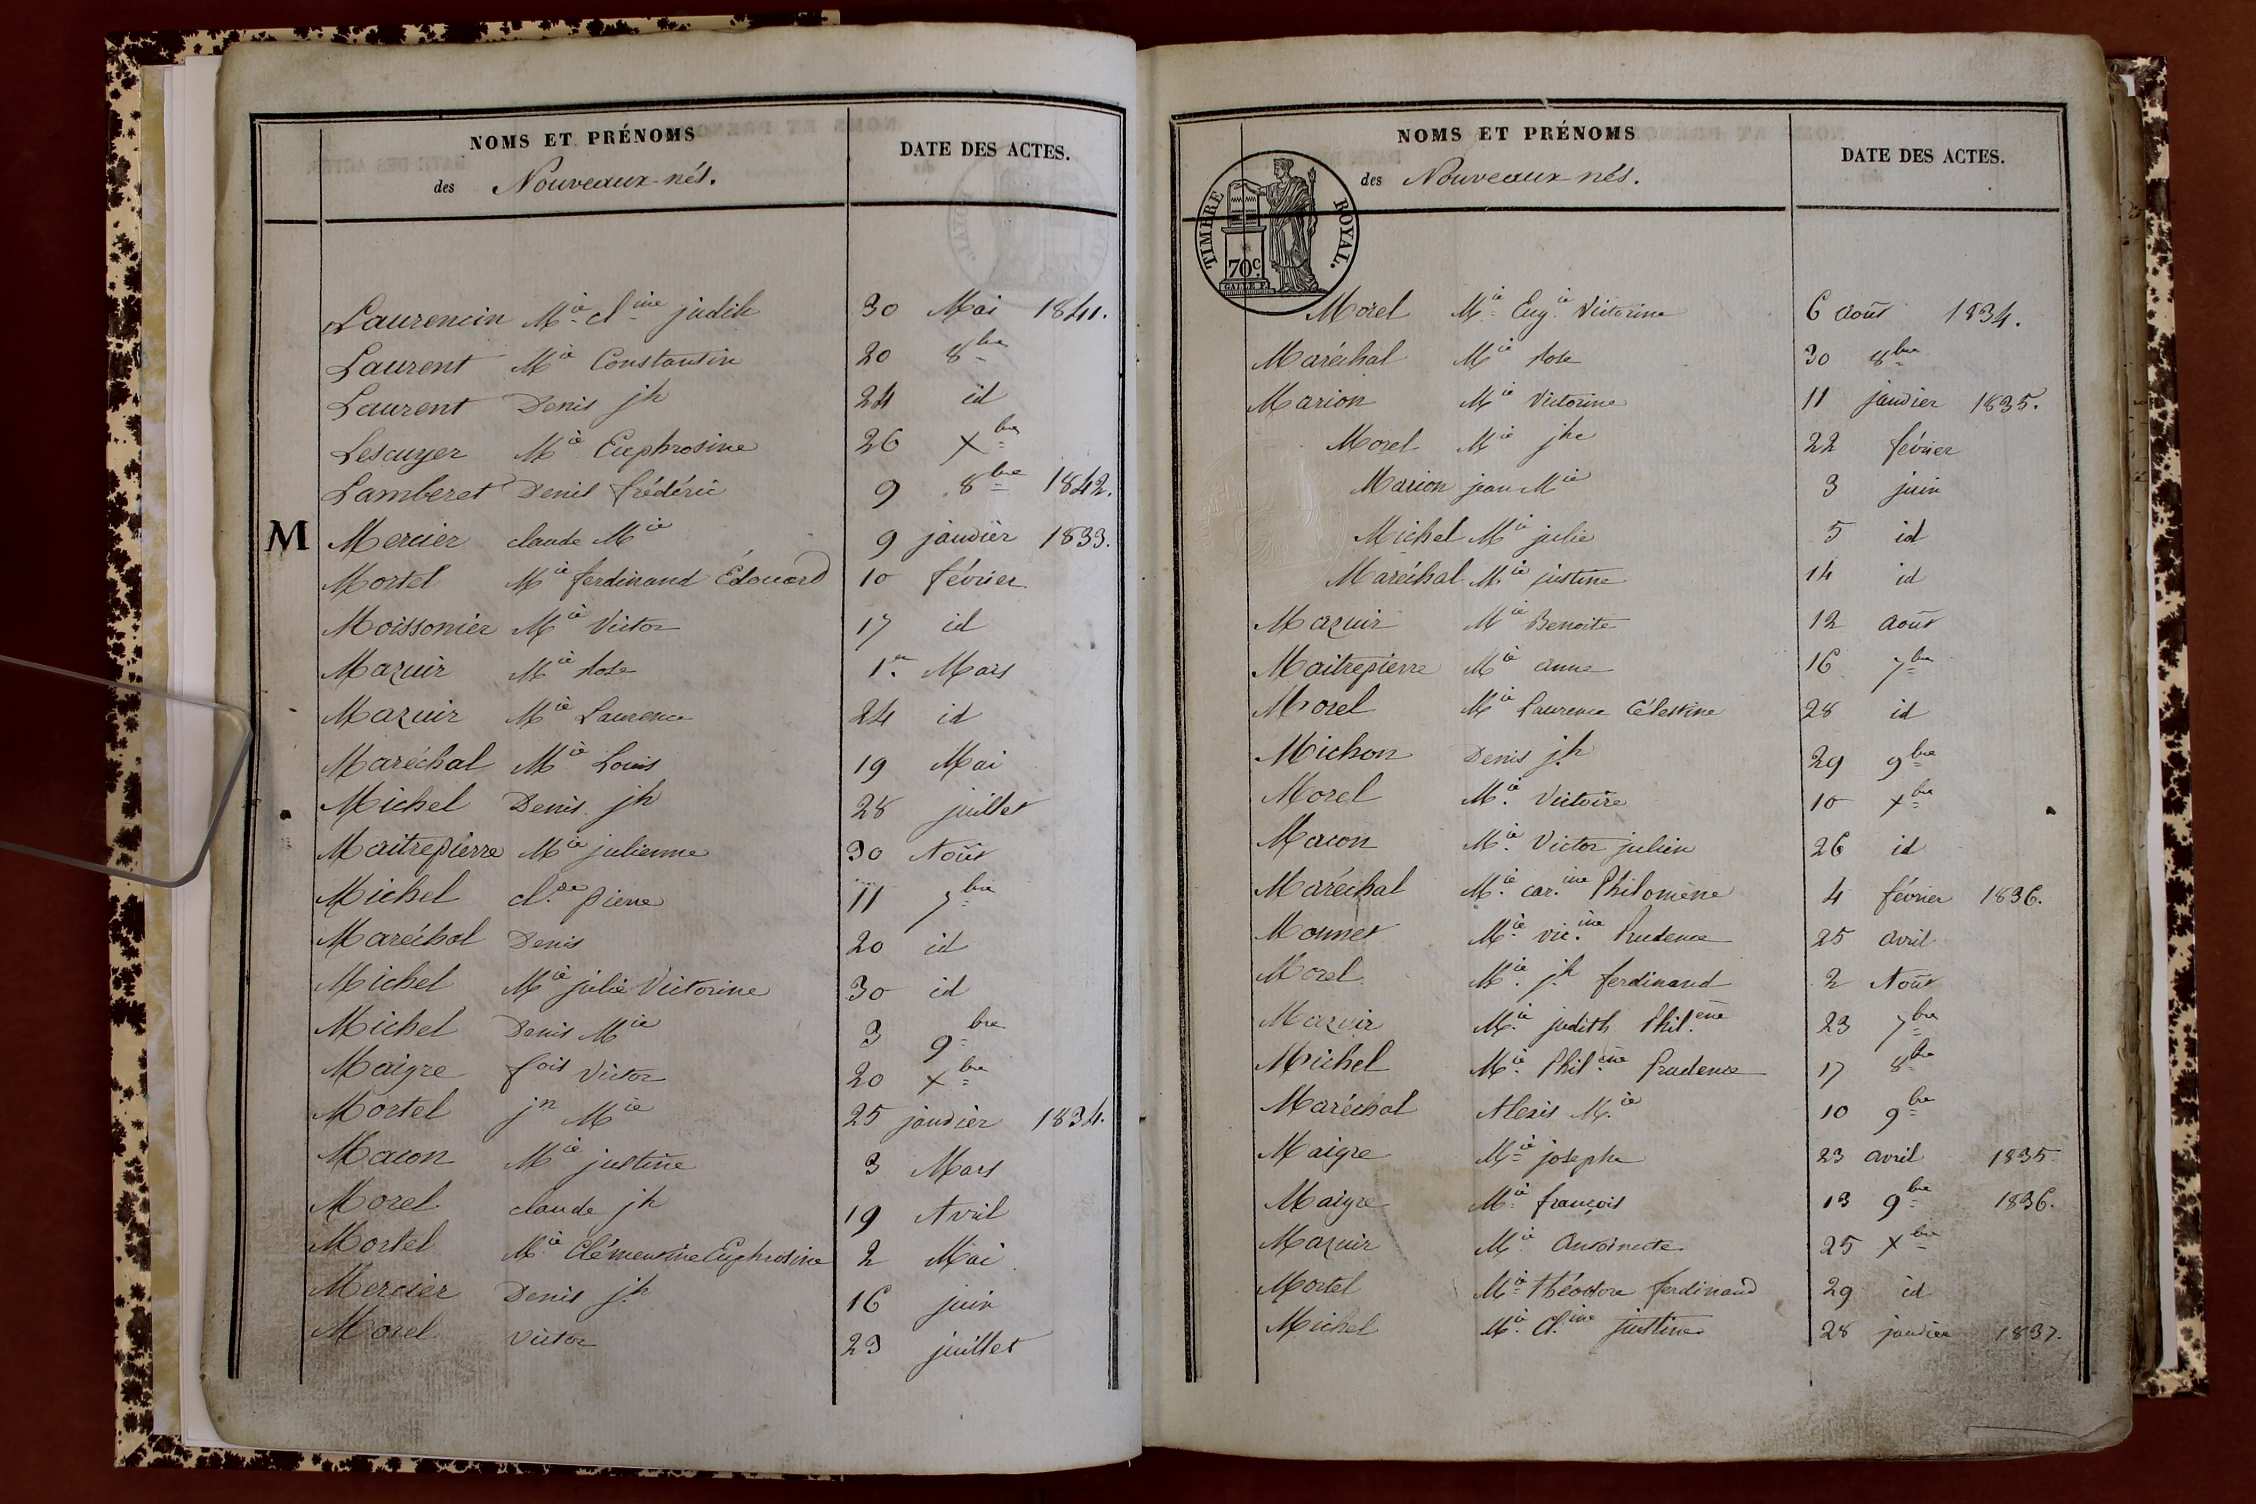 NOMS ET PRÉNOMS
des Nouveaux-nés.
DATE DES ACTES.
Laurencin Mie cline judith 30 Mai 1841.
Laurent Mie Constantin 20 8bre
Laurent Denis jh 24 id
Lescuyer Mie Euphrosine 26 Xbre
Lamberet Denis frédéric 9 8bre 1842.
M Mercier claude Mie 9 janvier 1833.
Mortel Mie ferdinand Édouard 10 février
Moissonier Mie Victor 17 id
Mazuir Mie Rose 1er Mars
Mazuir Mie Laurence 24 id
Maréchal Mie Louis 19 Mai
Michel Denis jh 28 juillet
Maitrepierre Mie julienne 30 Août
Michel clde pierre 11 7bre
Maréchal Denis 20 id
Michel Mie julie Victorine 30 id
Michel Denis Mie 3 9bre
Maigre fois Victor 20 Xbre
Mortel jn Mie 25 janvier 1834.
Macon Mie justine 3 Mars
Morel claude jh 19 Avril
Mortel Mie Clémentine Euphrosine 2 Mai
Mercier Denis jh 16 juin
Morel Victor 23 juillet
NOMS ET PRÉNOMS
des Nouveaux-nés.
DATE DES ACTES.
TIMBRE ROYAL.
70c.
Morel Mie Eugie Victorine 6 août 1834.
Maréchal Mie Rose 30 8bre
Marion Mie Victorine 11 janvier 1835.
Morel Mie jhe 22 février
Marion jean Mie 3 juin
Michel Mie julie 5 id
Maréchal Mie justine 14 id
Mazuir Mie Benoite 12 août
Maitrepierre Mie anne 16 7bre
Morel Mie Laurence Célestine 28 id
Michon Denis jh 29 9bre
Morel Mie Victoire 10 Xbre
Macon Mie Victor julien 26 id
Maréchal Mie car.ine Philomène 4 février 1836.
Monnet Mie vic.ine Prudence 25 avril
Morel Mie jh ferdinand 2 Août
Mazuir Mie judith Phil.ène 23 7bre
Michel Mie Phil.ène Prudence 17 8bre
Maréchal Alexis Mie 10 9bre
Maigre Mie josephe 23 avril 1835
Maigre Mie françois 13 9bre 1836.
Mazuir Mie Antoinette 25 Xbre
Mortel Mie théodore ferdinand 29 id
Michel Mie Cl.ine justine 28 janvier 1837.